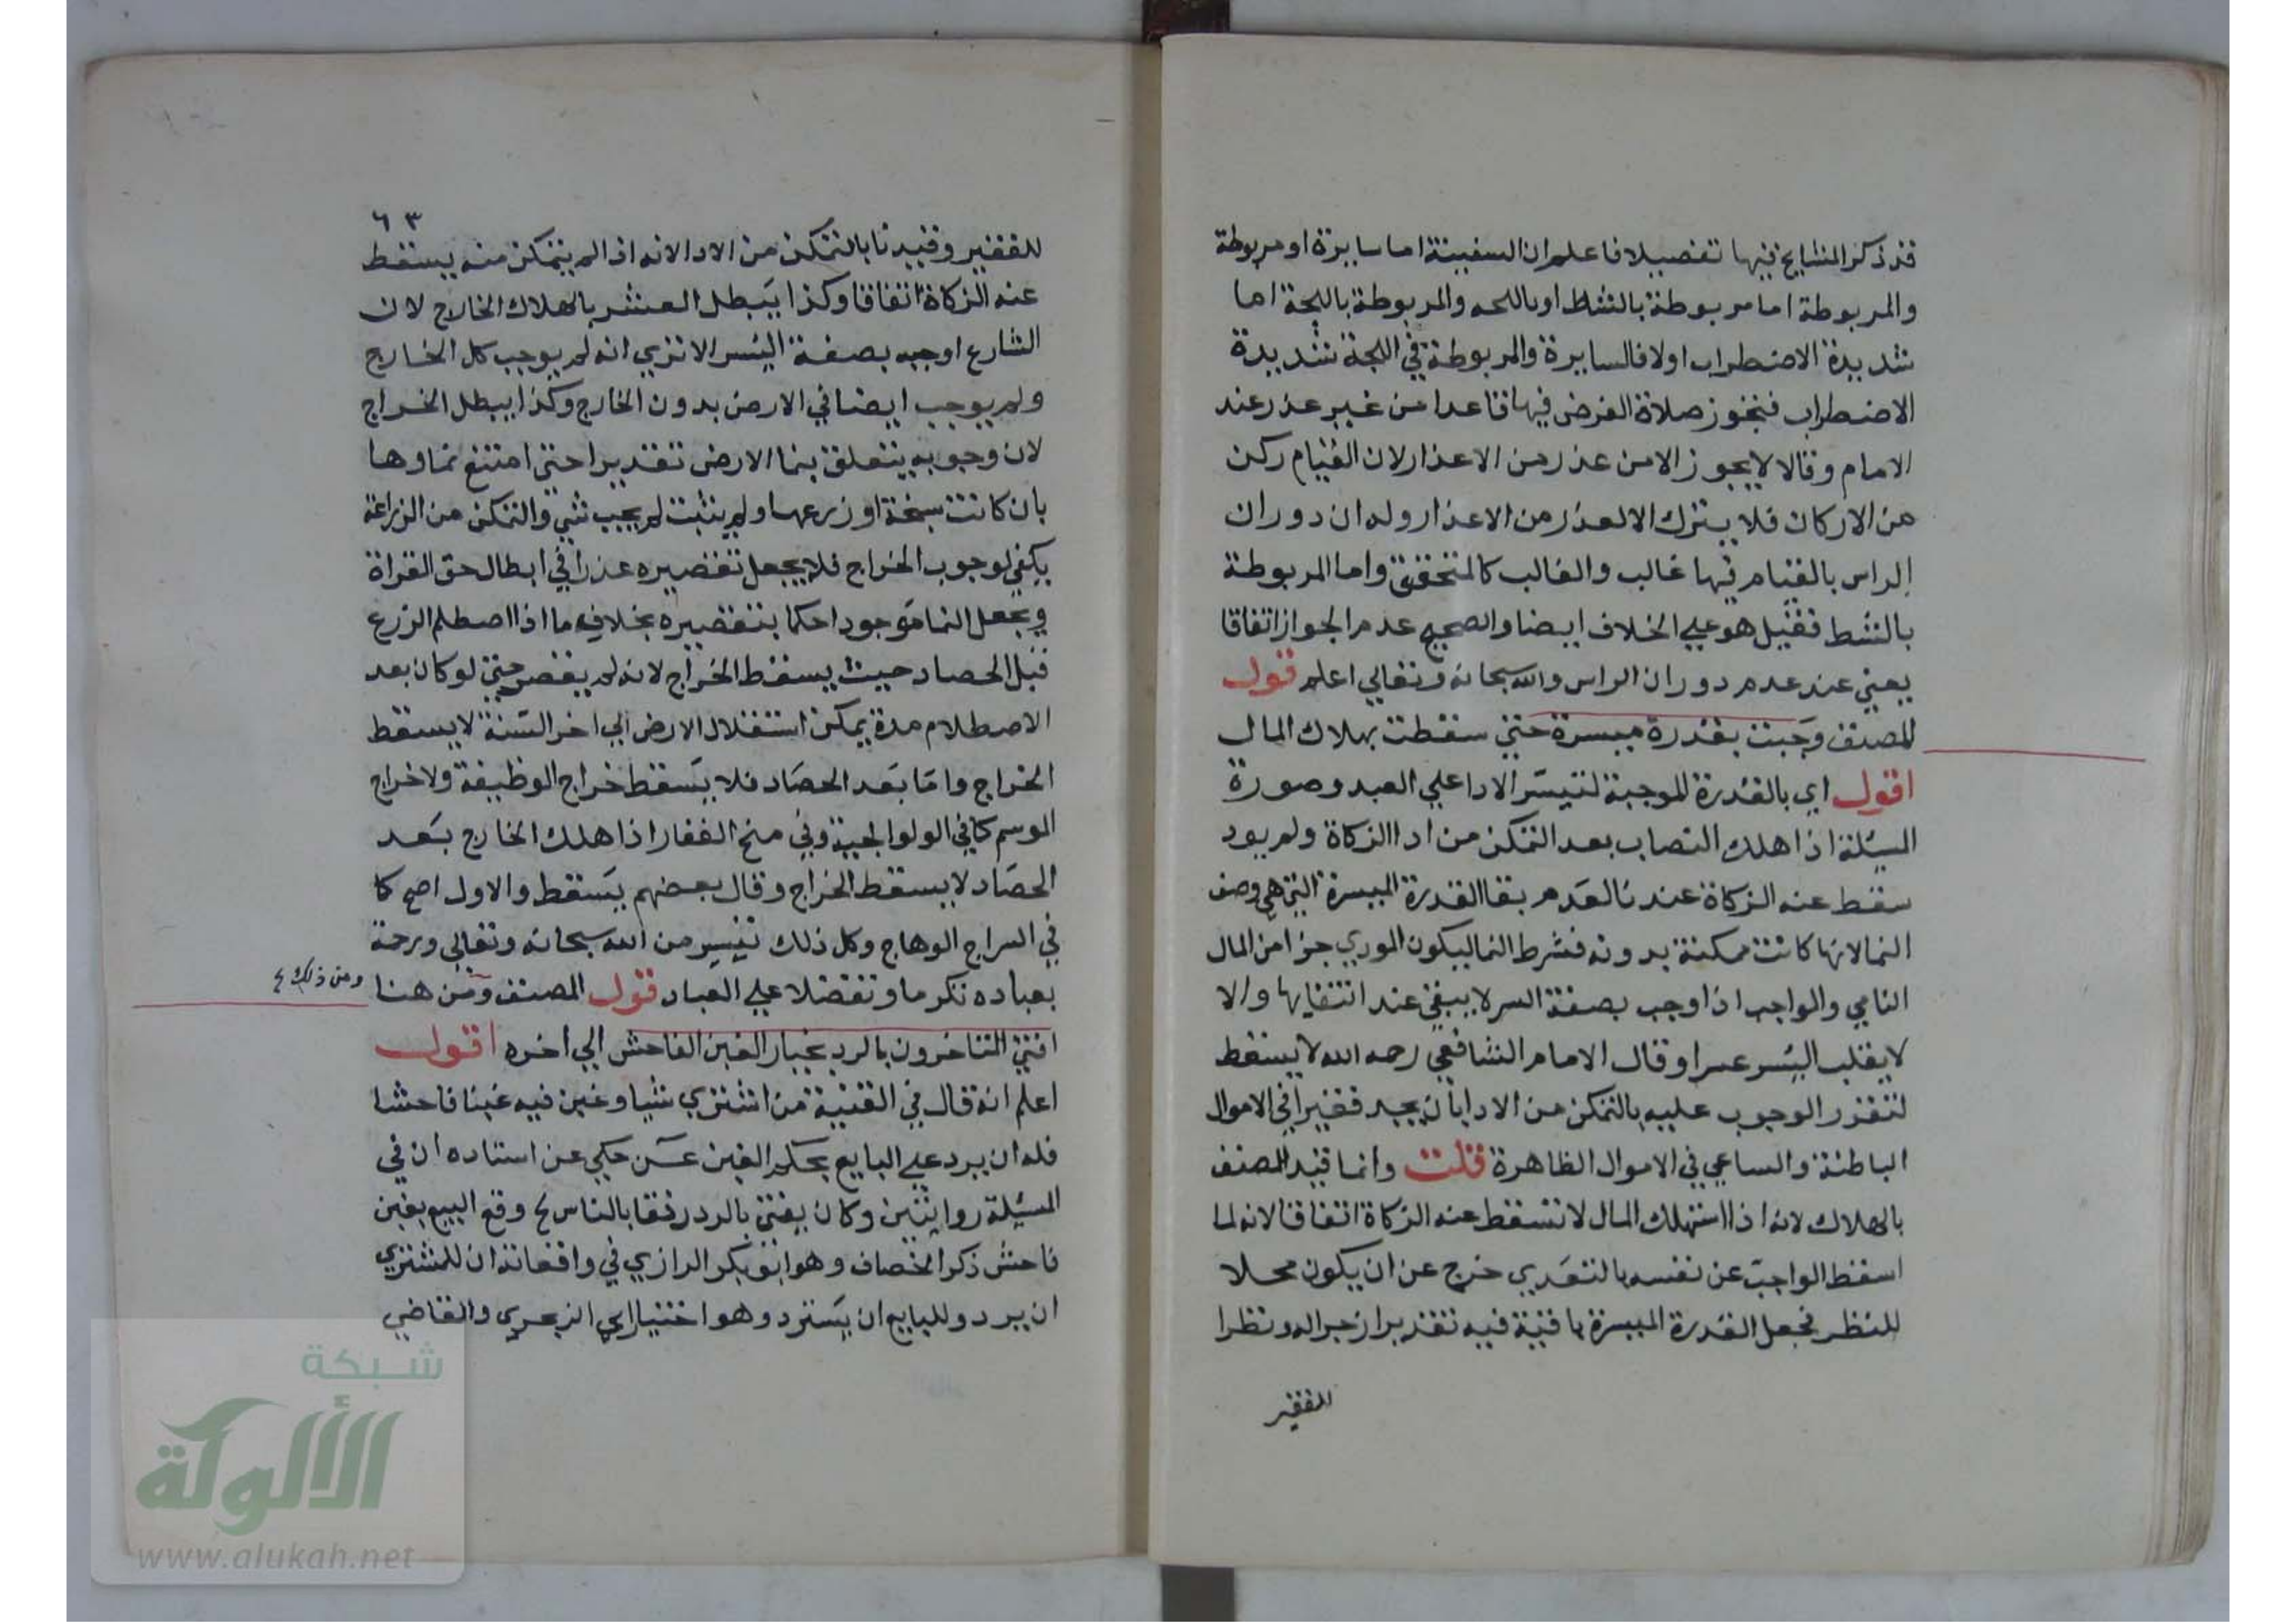 قد ذكر المشايخ فيها تفصيلا فاعلم ان السفينة اما سايرة او مربوطة
والمربوطة اما مربوطة بالشط او باللجه والمربوطة باللجة اما
شديدة الاضطراب اولا فالسايرة والمربوطة في اللجة شديدة
الاضطراب فتجوز صلاة الفرض فيها قاعدا من غير عذر عند
الامام وقالا لا يجوز الا من عذر من الاعذار لان القيام ركن
من الاركان فلا يترك الا لعذر من الاعذار وله ان دوران
الراس بالقيام فيها غالب والغالب كالمتحقق واما المربوطة
بالشط فقيل هو علي الخلاف ايضا والصحيح عدم الجواز اتفاقا
يعني عند عدم دوران الراس والله سبحانه وتعالي اعلم قول
المصنف وجبت بقدرة ميسرة حتي سقطت بهلاك المال
اقول اي بالقدرة الموجبة لتيسر الادا علي العبد وصورة
المسئلة اذا هلك النصاب بعد التمكن من ادا الزكاة ولم يود
سقط عنه الزكاة عندنا لعدم بقا القدرة الميسرة التي هي وصف
النما لانها كانت ممكنة بدونه فشرط النما ليكون المودي جزا من المال
النامي والواجب اذا وجب بصفة اليسر لا يبقي عند انتفايها والا
لا يقلب اليسر عسرا وقال الامام الشافعي رحمه الله لا يسقط
لتقرر الوجوب عليه بالتمكن من الادا بان يجد فقيرا في الاموال
الباطنة والساعي في الاموال الظاهرة قلت وانما قيد المصنف
بالهلاك لانه اذا استهلك المال لا تسقط عنه الزكاة اتفاقا لانه لما
اسقط الواجب عن نفسه بالتعدي خرج عن ان يكون محلا
للنظر فجعل القدرة الميسرة باقية فيه تقديرا زجرا له ونظرا
للفقير
٦٣
للفقير وقيدنا بالتمكن من الادا لانه اذا لم يتمكن منه يسقط
عنه الزكاة اتفاقا وكذا يبطل العشر بالهلاك الخارج لان
الشارع اوجبه بصفة اليسر الا تري انه لم يوجب كل الخارج
ولم يوجب ايضا في الارض بدون الخارج وكذا يبطل الخراج
لان وجوبه يتعلق بنما الارض تقديرا حتي امتنع نماوها
بان كانت سبخة او زرعها ولم ينبت لم يجب شي والتمكن من الزراعة
يكفي لوجوب الخراج فلا يجعل تقصيره عذرا في ابطال حق الغزاة
ويجعل النما موجودا حكما بتقصيره بخلاف ما اذا اصطلم الزرع
قبل الحصاد حيث يسقط الخراج لانه لم يقصر حتي لو كان بعد
الاصطلام مدة يمكن استغلال الارض الي اخر السنة لا يسقط
الخراج واما بعد الحصاد فلا يسقط خراج الوظيفة ولا خراج
الموسم كما في الولوالجية وفي منح الغفار اذا هلك الخارج بعد
الحصاد لا يسقط الخراج وقال بعضهم يسقط والاول اصح كما
في السراج الوهاج وكل ذلك تيسير من الله سبحانه وتعالي ورحمة
بعباده تكرما وتفضلا علي العباد قول المصنف ومن هنا
ومن ذلك
افتي المتاخرون بالرد بخيار الغبن الفاحش الي اخره اقول
اعلم انه قال في القنية من اشتري شيا وغبن فيه غبنا فاحشا
فله ان يرد علي البايع بحكم الغبن عـن حكي عن استاده ان في
المسئلة روايتين وكان يفتي بالرد رفقا بالناس وقع البيع بغبن
فاحش ذكر الخصاف وهو ابو بكر الرازي في واقعاته ان للمشتري
ان يرد وللبايع ان يسترد وهو اختيار ابي الزبحري والقاضي
شبكة
الألوكة
www.alukah.net